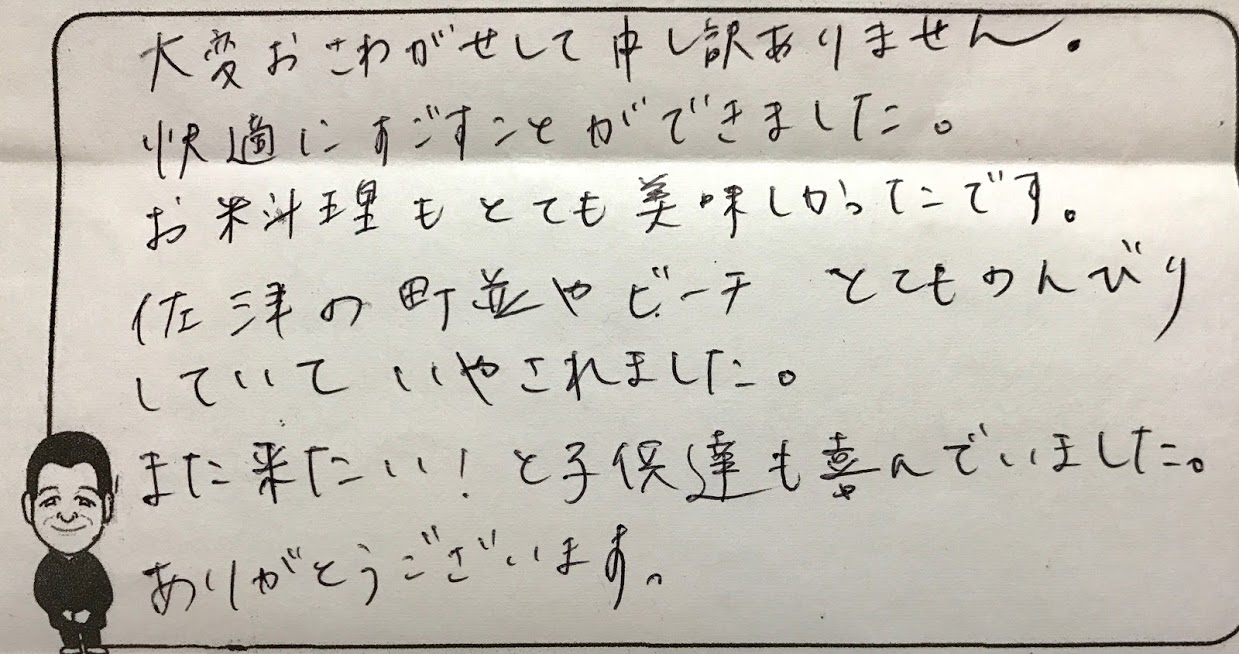 大変おさわがせして申し訳ありません。
快適にすごすことができました。
お料理もとても美味しかったです。
佐津の町並やビーチ とてものんびり
していて いやされました。
また来たい!と子供達も喜んでいました。
ありがとうございます。